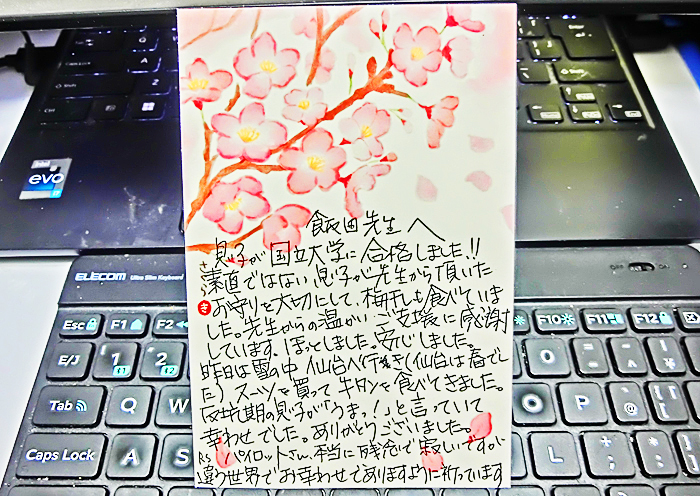 飯田先生へ
息子が国立大学に合格しました!!
素直ではない息子が先生から頂いた
お守りを大切にして、梅干しも食べていま
した。先生からの温かいご支援に感謝
しています。ほっとしました。安心しました。
昨日は雪の中 仙台へ行き(仙台は春でし
た) スーツを買って牛タンを食べてきました。
反抗期の息子が「うまっ!」と言っていて
幸わせでした。ありがとうございました。
P.S パイロットさん、本当に残念で寂しいです。
違う世界でお幸わせでありますように祈っています
き
intel
evo
ELECOM Ultra Slim Keyboard
Esc F1 F2
F10 F11 F12
E/J 1 2
Tab Q W O P
Caps Lock A
OFF
Caps Lock
Shift
Ctrl
Shift